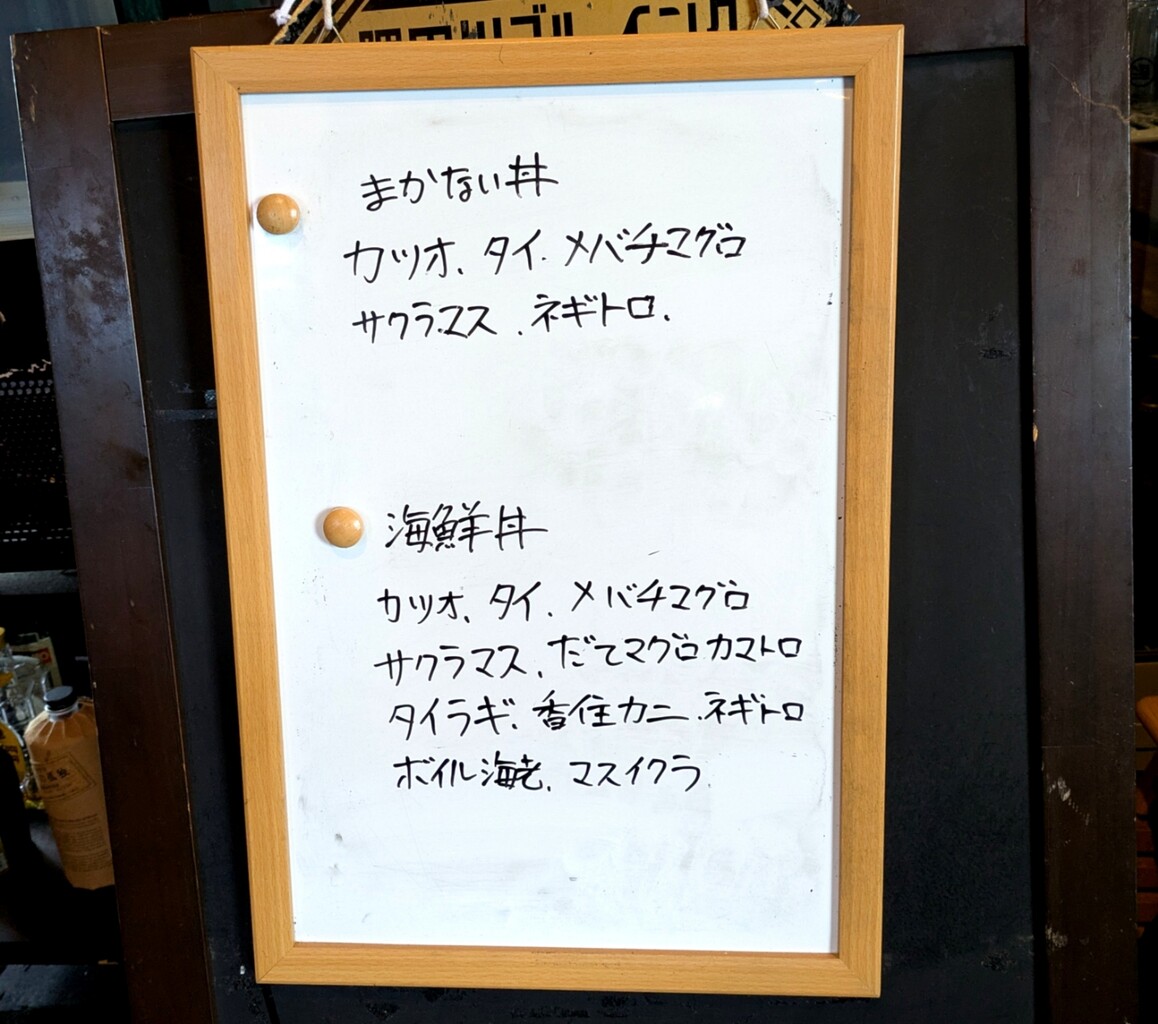 まかない丼
カツオ、タイ、メバチマグロ
サクラマス、ネギトロ、
海鮮丼
カツオ、タイ、メバチマグロ
サクラマス、だてマグロカマトロ
タイラギ、香住カニ、ネギトロ
ボイル海老、マスイクラ